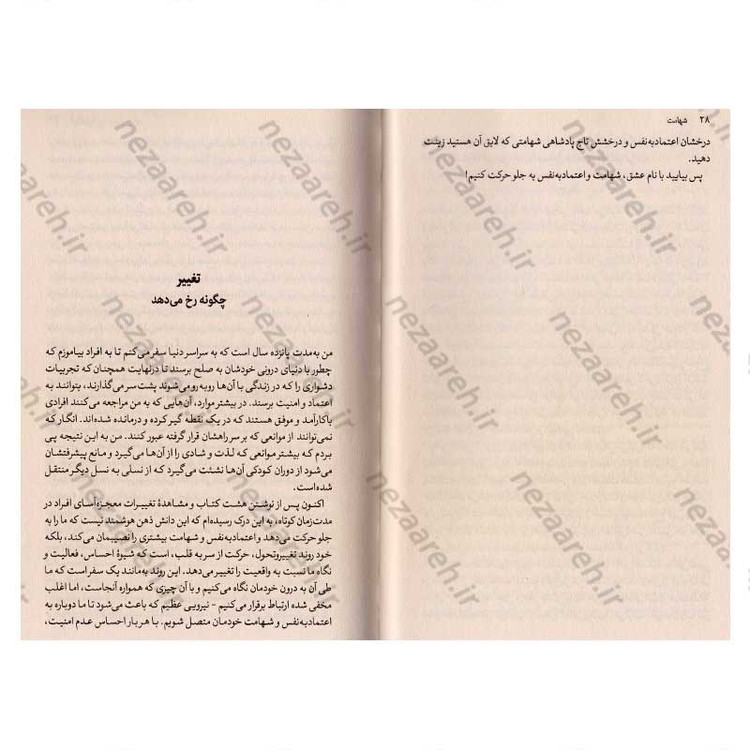 ۲۸ شهامت
درخشان اعتمادبه‌نفس و درخشش تاج پادشاهی شهامتی که لایق آن هستید زینت
دهید.
پس بیایید با نام عشق، شهامت و اعتمادبه‌نفس به جلو حرکت کنیم!
تغییر
چگونه رخ می‌دهد
من به‌مدت پانزده سال است که به سراسر دنیا سفر می‌کنم تا به افراد بیاموزم که
چطور با دنیای درونی خودشان به صلح برسند تا درنهایت همچنان که تجربیات
دشواری را که در زندگی با آن‌ها روبه‌رو می‌شوند پشت‌سر می‌گذارند، بتوانند به
اعتماد و امنیت برسند. در بیشتر موارد، آن‌هایی که به من مراجعه می‌کنند افرادی
باکارآمد و موفق هستند که در یک نقطه گیر کرده و درمانده شده‌اند. انگار که
نمی‌توانند از موانعی که بر سر راهشان قرار گرفته عبور کنند. من به این نتیجه پی
بردم که بیشتر موانعی که لذت و شادی را از آن‌ها می‌گیرد و مانع پیشرفتشان
می‌شود از دوران کودکی آن‌ها نشئت می‌گیرد که از نسلی به نسل دیگر منتقل
شده‌است.
اکنون پس از نوشتن هشت کتاب و مشاهدۀ تغییرات معجزه‌آسای افراد در
مدت‌زمان کوتاه، به این درک رسیده‌ام که این دانش ذهن هوشمند نیست که ما را به
جلو حرکت می‌دهد و اعتمادبه‌نفس و شهامت بیشتری را نصیبمان می‌کند، بلکه
خود روند تغییروتحول، حرکت از سر به قلب، است که شیوۀ احساس، فعالیت و
نگاه ما نسبت به واقعیت را تغییر می‌دهد. این روند به‌مانند یک سفر است که ما
طی آن به درون خودمان نگاه می‌کنیم و با آن چیزی که همواره آنجاست، اما اغلب
مخفی شده ارتباط برقرار می‌کنیم - نیرویی عظیم که باعث می‌شود تا ما دوباره به
اعتمادبه‌نفس و شهامت خودمان متصل شویم. با هر بار احساس عدم امنیت،
nezaareh.ir